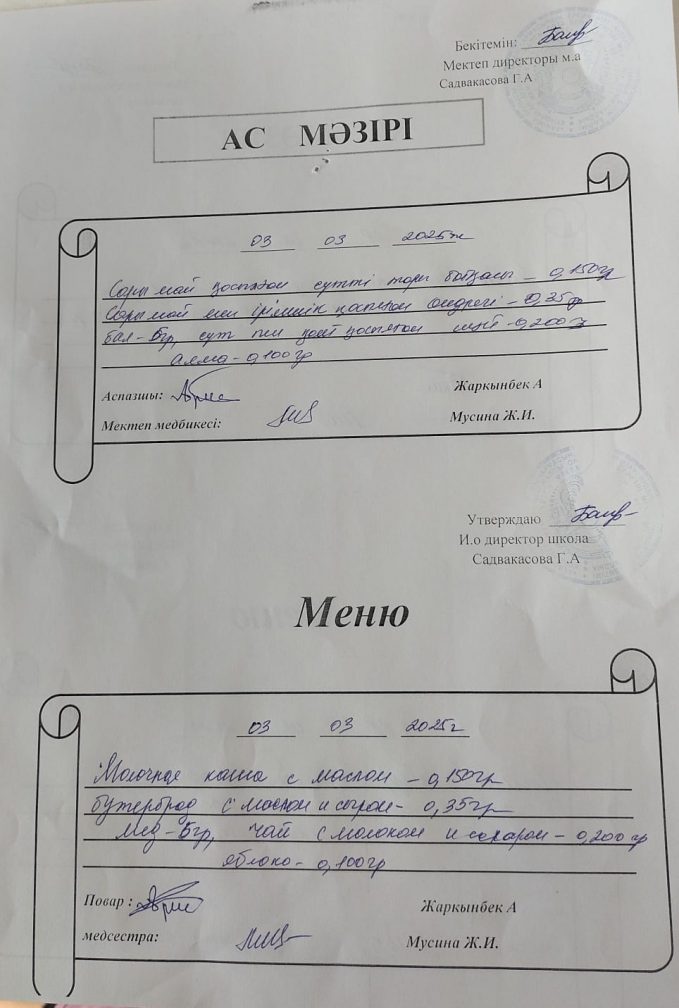 Бекітемін:
Мектеп директоры м.а
Садвакасова Г.А
АС МӘЗІРІ
03 03 2025ж
Сары май қосылған сүтті тары ботқасы - 0,150гр
Сары май мен ірімшік қосылған бутерброд - 0,35гр
бал - 5гр, сүт пен қант қосылған шай - 0,200гр
алма - 0,100гр
Аспазшы: Жаркынбек А
Мектеп медбикесі: Мусина Ж.И.
Утверждаю
И.о директор школа
Садвакасова Г.А
Меню
03 03 2025г
Молочная каша с маслом - 0,150гр
бутерброд с маслом и сыром - 0,35гр
мед - 5гр, чай с молоком и сахаром - 0,200гр
яблоко - 0,100гр
Повар : Жаркынбек А
медсестра: Мусина Ж.И.